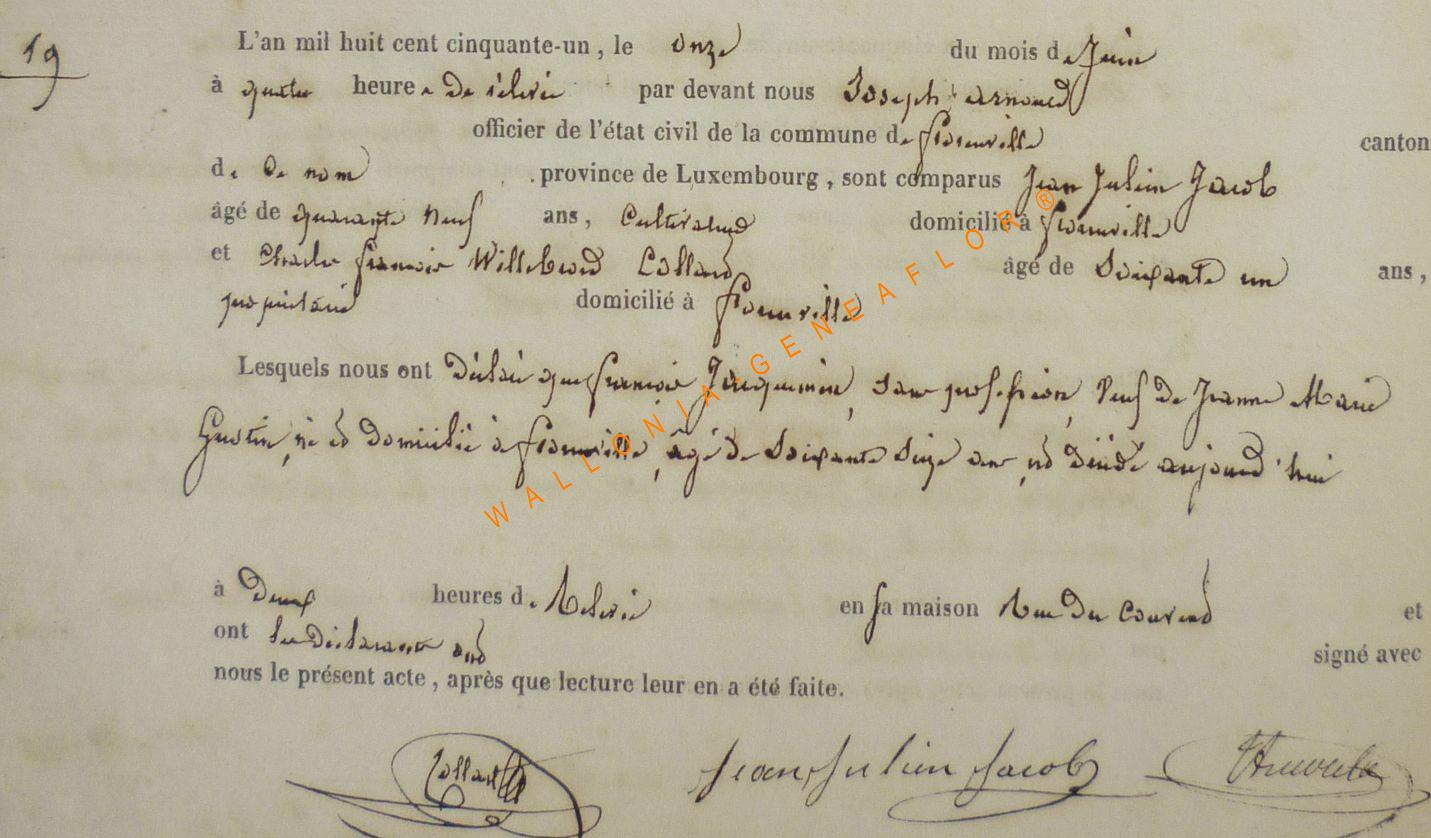 19
L'an mil huit cent cinquante-un, le onze du mois de Juin
à quatre heures de rélevée par devant nous Joseph Arnould
officier de l'état civil de la commune de florenville canton
de Ce nom province de Luxembourg, sont comparus Jean Julien Jacob
âgé de quarante neuf ans, Cultivateur domicilié à florenville
et Charles françois Willebrord Collard âgé de Soixante un ans,
propriétaire domicilié à florenville
Lesquels nous ont Déclaré que françois Jacquemin, Sans profession, Veuf de Jeanne Marie
né et Domicilié à florenville, âgé de Soixante Seize ans, est Décédé aujourd'hui
à Deux heures de Relevée en sa maison Rue Du Couvent et
ont les Déclarants signé avec
nous le présent acte, après que lecture leur en a été faite.
Collard Jean Julien Jacob
WALLONIA-GENEAFLOR®